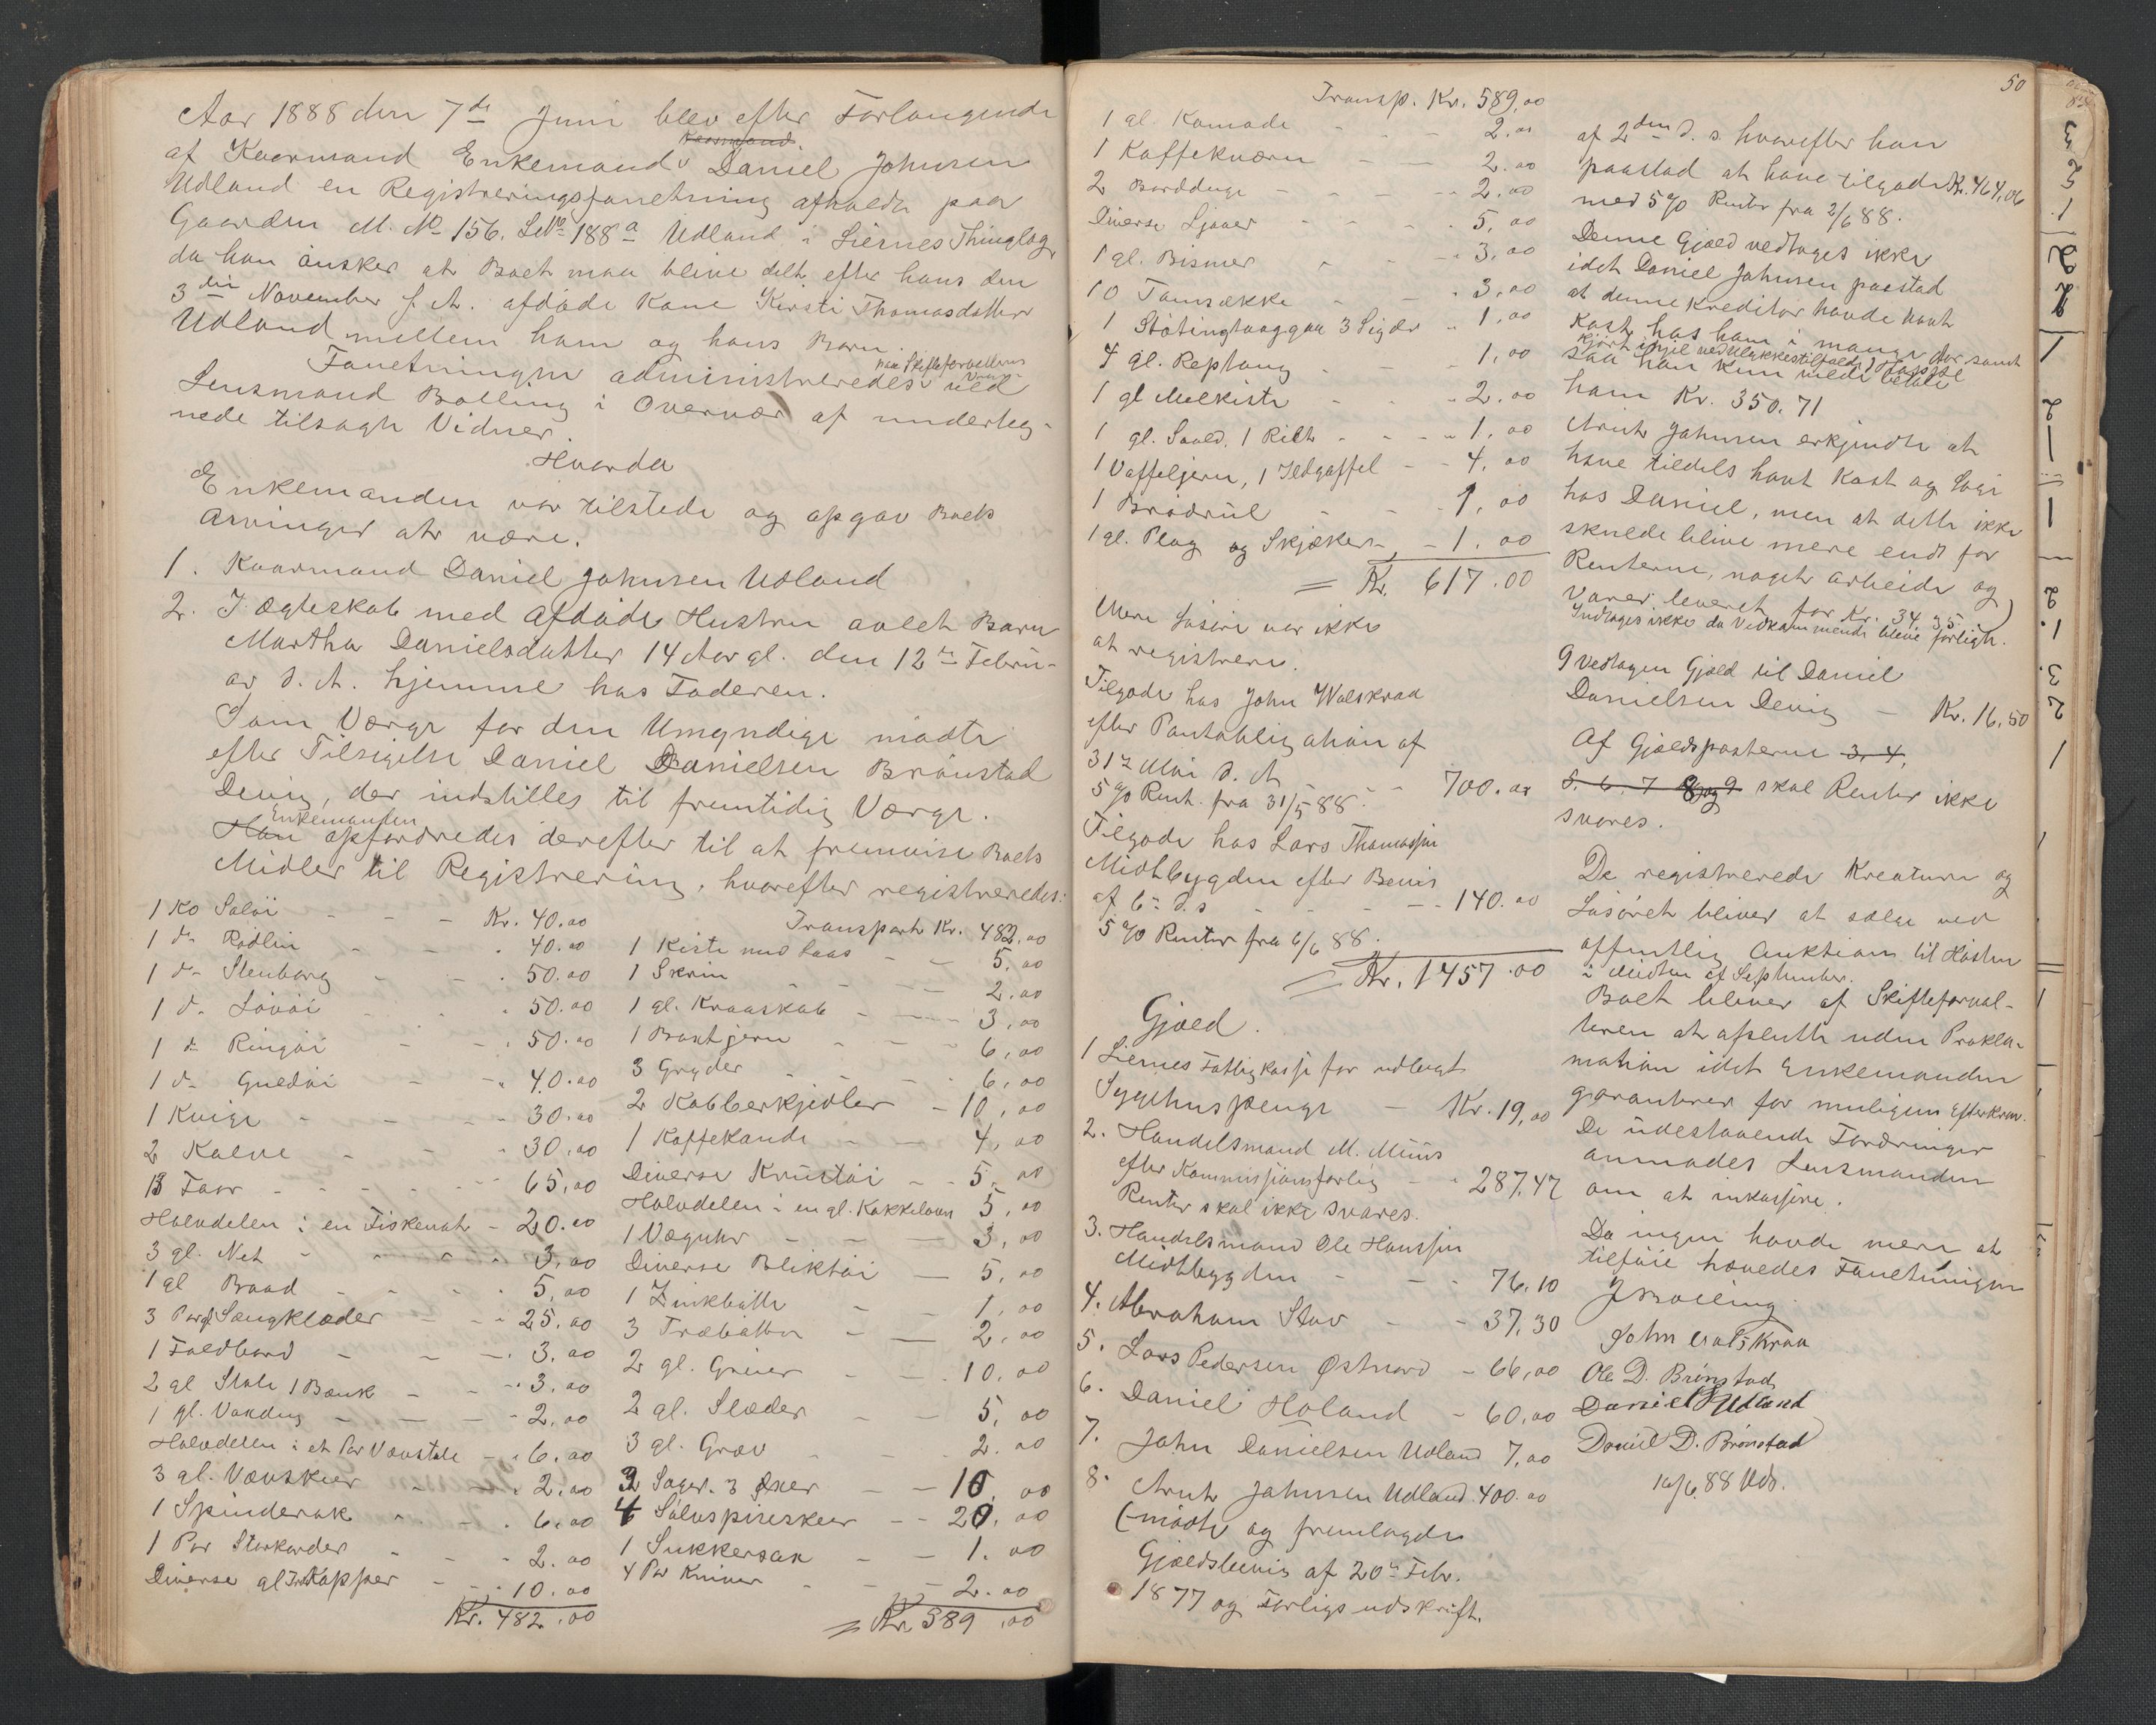 Aar 1888 den 7de Juni blev efter Forlangende
Kaarmand
af Kaarmand Enkemand Daniel Johnsen
Udland en Registreringsforretning afholdt paa
Gaarden M. No 156. LNo 188a Udland i Liernes Thinglag,
da han ønsker at Boet maa blive delt efter hans den
3die November f. A. afdøde Kone Kirsti Thomasdatter
Udland mellem ham og hans Barn.
Forretningen administreredes paa Skifteforvalterens Vegne ved
Lensmand Bolling i Overvær af underteg-
nede tilsagte Vidner.
Hvorda
Enkemanden var tilstede og opgav Boets
Arvinger at være.
1. Kaarmand Daniel Johnsen Udland
2. I Ægteskab med afdøde Hustru avlet Barn
Martha Danielsdatter 14 Aar gl. den 12te Febru-
ar d. A. hjemme hos Faderen.
Som Værge for den Umyndige mødte
efter Tilsigelse Daniel Danielsen Brønstad
Devig, der indstilles til fremtidig Værge.
Enkemanden
Han opfordredes derefter til at fremvise Boets
Midler til Registrering, hvorefter registreredes:
1 Ko Saløi - - - Kr. 40.00
1 do Rødlin - - - 40.00
1 do Stenborg - - 50.00
1 do Løvøi - - 50.00
1 do Ringøi - - 50.00
1 do Guldøi - - 40.00
1 Kvige - - - 30.00
2 Kalve - - - 30.00
13 Faar - - - - 65,00
Halvdelen i en Fiskenot - 20.00
3 gl. Net - - - 3,00
1 gl Baad - - - 5,00
3 Par gl Sengklæder - - 25.00
1 Foldbord - - - 3.00
2 gl Stole 1 Bænk - - 3.00
1 gl. Vanding - - - 2,00
Halvdelen i et Par Vævstole - 6.00
3 gl. Vævskeer - - 2.00
1 Spinderok - - - 6.00
1 Par Storkarder - - 2.00
Diverse gl Trækopper - - 10.00
Kr. 482.00
Transport Kr. 482.00
1 Kiste med Laas - - 5.00
1 Skrin - - - 2.00
1 gl. Kraaskab - - 3,00
1 Baxtjern - - - 6,00
3 Gryder - - - 6,00
2 Kobberkjedler - 10,00
1 Kaffekande - - 4,00
Diverse Krustøi - - 5,00
Halvdelen i en gl. Kakkelovn 5,00
1 Væguhr - - - 3,00
Diverse Bliktøi - - 5,00
1 Zinkbøtte - - 1,00
3 Træbøtter - - 2,00
2 gl. Griner - - 10.00
2 gl. Slæder - - 5,00
3 gl. Grev - - 2.00
2 Sager. 3 Øxer - - 10,00
4 Sølvspiseskeer - - 20,00
1 Sukkersax - - 1.00
4 Par Kniver - - - 2.00
= Kr. 589,00
50
Transp. Kr. 589,00
1 gl. Komode - - - 2.00
1 Kaffekværn - - 2.00
2 Bordduge - - - 2.00
Diverse Ljaaer - - 5,00
1 gl. Bismer - - 3,00
10 Tomsække - - 3,00
1 Støtingtaag paa 3 Sigder - 1,00
4 gl. Reptaug - - 1,00
1 gl Melkiste - - 2.00
1 gl. Saald. 1 Rilt - - 1,00
1 Vaffeljern, 1 Ildgaffel - - 4,00
1 Brødrul - - 1,00
1 gl. Plog og Skjæker - 1.00
= Kr. 617.00
Mere Løsøre var ikke
at registrere.
Tilgode hos John Walskraa
efter Pantobligation af
31te Mai d. A - - 700.00
5 % Rent. fra 31/5 88.
Tilgode hos Lars Thomassen
Midtbygden efter Bevis
af 6te d. s - - - 140.00
5 % Renter fra 6/6 88.
= Kr. 1457.00
Gjæld.
1 Liernes Fattigkasse for udlagt
Sygehuspenge - Kr. 19,00
2. Handelsmand M. Muus
efter Kommissionsforlig - - 287,47
Renter skal ikke svares.
3. Handelsmand Ole Hanssen
Midtbygden - - - 76.10
4. Abraham Stav - - 37,30
5. Lars Pedersen Østnord - 66,00
6. Daniel Holand - 60,00
7. John Danielsen Udland 7,00
8. Arnt Johnsen Udland 400.00
(mødte og fremlagde
Gjældsbevis af 20de Febr.
1877 og Forligsudskrift
af 2den d. s. hvorefter han
paastod at have tilgode Kr. 464,06
med 5 % Renter fra 2/6 88.
Denne Gjæld vedtages ikke
idet Daniel Johnsen paastod
at denne Kreditor havde havt
Kost hos ham i mange Aar samt
saa han kun vilde betale
ham Kr. 350.71
Arnt Johnsen erkjendte at
have tildels havt Kost og Logi
hos Daniel, men at dette ikke
skulde blive mere endt for
Renterne, noget Arbeide og
Varer leveret for Kr. 34.35.)
Indtages ikke da Vedkommende bleve forligte.
9 Vedtagen Gjæld til Daniel
Danielsen Devig - Kr. 16,50
Af Gjældsposterne 3. 4.
5. 6. 7 8 og 9 skal Renter ikke
svares.
De registrerede Kreature og
Løsøret bliver at sælge ved
offentlig Auktion til Høsten
i Midten af September.
Boet bliver af Skifteforval-
teren at afslutte uden Prokla-
mation idet Enkemanden
garanterer for muligens Efterkrav.
De udestaaende Fordringer
anmodes Lensmanden
om at inkassere.
Da ingen havde mere at
tilføie hævedes Forretningen
J Bolling
John Walskraa
Ole D. Brønstad
Daniel J Udland
Daniel D. Brønstad
16/6 88 Uds.